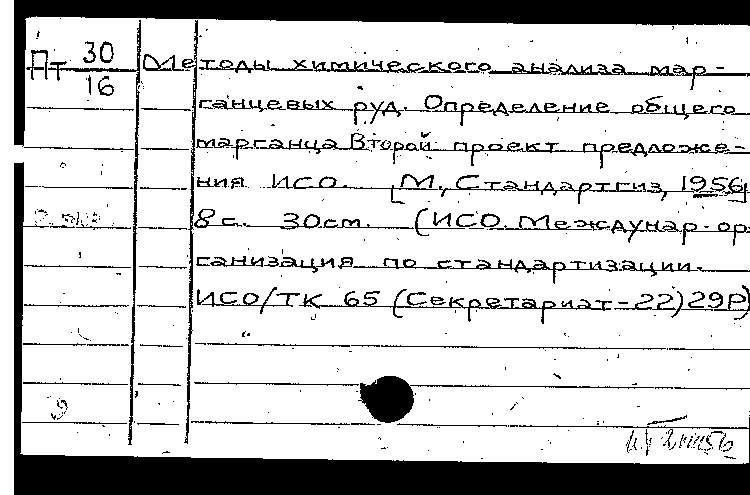 Пт 30/16 Методы химического анализа мар-
ганцевых руд. Определение общего
марганца Второй проект предложе-
ния ИСО. [М., Стандартгиз, 1956]
8 с. 30 см. (ИСО. Междунар. ор
ганизация по стандартизации.
ИСО/ТК 65 (Секретариат-22) 29Р)
9